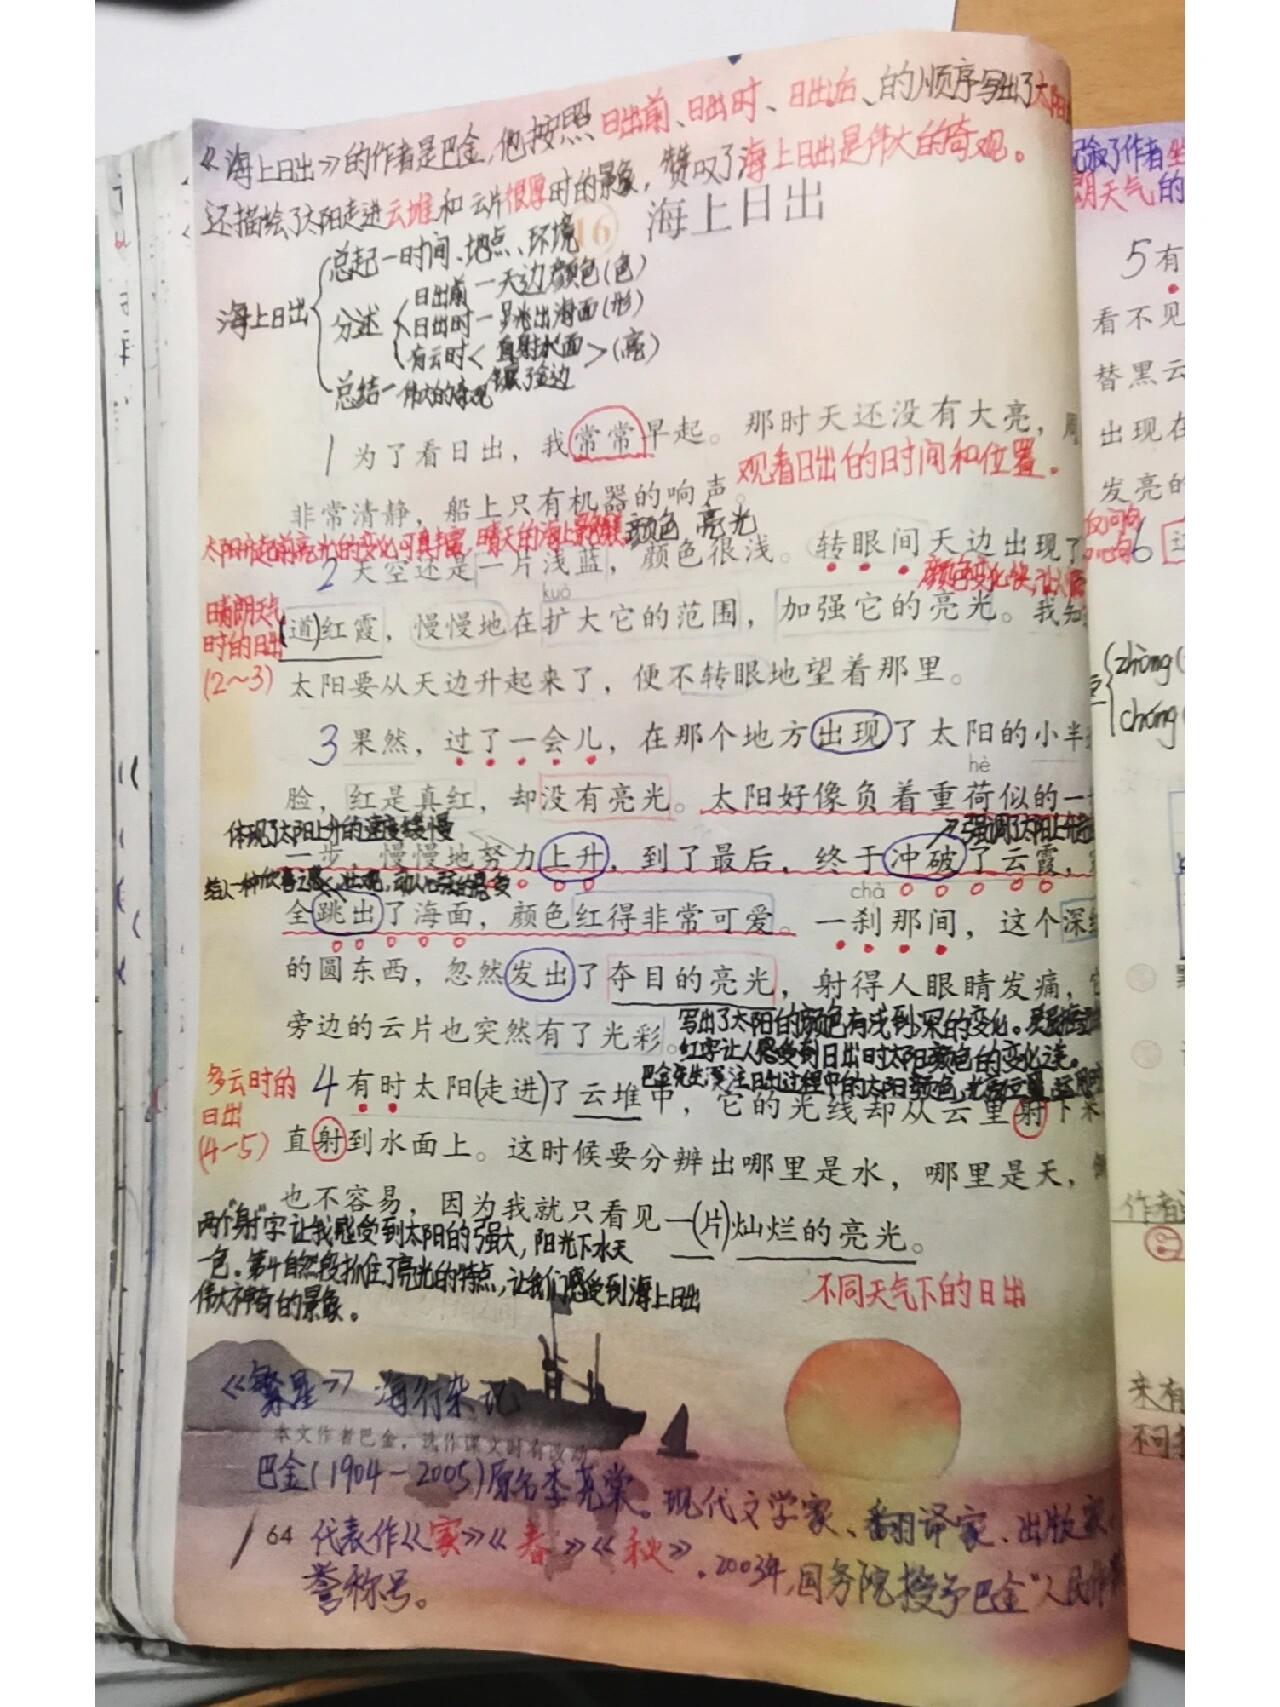 《海上日出》的作者是巴金,他按照日出前、日出时、日出后、的顺序写出了太阳
还描绘了太阳走进云堆和云片很厚时的景象,赞叹了海上日出是伟大的奇观。
16 海上日出
海上日出
总起一时间、地点、环境
分述
日出前一天边颜色(色)
日出时一跳出海面(形)
有云时<直射水面>(亮)
镶了金边
总结一伟大的奇观
1为了看日出,我常常早起。那时天还没有大亮,
观看日出的时间和位置。
非常清静,船上只有机器的响声。
颜色 亮光
2天空还是一片浅蓝,颜色很浅。转眼间天边出现了
kuò
晴朗天气
时的日出
(2~3)
(道)红霞,慢慢地在扩大它的范围,加强它的亮光。我知
太阳要从天边升起来了,便不转眼地望着那里。
3果然,过了一会儿,在那个地方出现了太阳的小半
hè
脸,红是真红,却没有亮光。太阳好像负着重荷似的一
体现了太阳上升的速度缓慢
一步,慢慢地努力上升,到了最后,终于冲破了云霞,
chà
全跳出了海面,颜色红得非常可爱。一刹那间,这个深
的圆东西,忽然发出了夺目的亮光,射得人眼睛发痛,
旁边的云片也突然有了光彩。
写出了太阳的颜色有浅到深的变化。
红字让人感受到日出时太阳颜色的变化
多云时的
日出
(4-5)
4有时太阳(走进)了云堆中,它的光线却从云里射下来
直射到水面上。这时候要分辨出哪里是水,哪里是天,
也不容易,因为我就只看见一(片)灿烂的亮光。
两个"射"字让我感受到太阳的强大,阳光下水天
一色。第4自然段抓住了亮光的特点,让我们感受到海上日出
伟大神奇的景象。
不同天气下的日出
《繁星》 海行杂记
本文作者巴金,选作课文时有改动。
巴金(1904-2005)原名李尧棠。现代文学家、翻译家、出版家
64 代表作《家》《春》《秋》.2003年,国务院授予巴金"人民作
誉称号。
5有
看不见
替黑云
出现在
发亮的
6
zhòng
chóng
作者
来有
不同